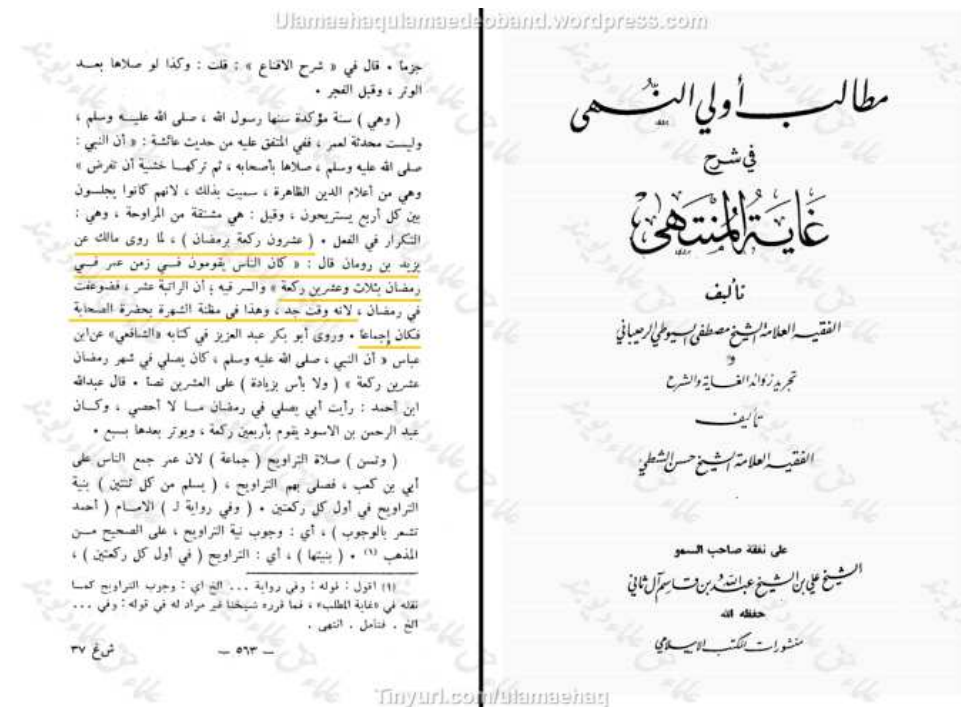 Ulamaehaqulamaedeoband.wordpress.com
مطالب أولي النهى
في شرح
غاية المنتهى
تأليف
الفقيه العلامة الشيخ مصطفى السيوطي الرحيباني
و
تجريد زوائد الغاية والشرح
تأليف
الفقيه العلامة الشيخ حسن الشطي
على نفقة صاحب السمو
الشيخ علي بن الشيخ عبد الله بن قاسم آل ثاني
حفظه الله
منشورات المكتب الإسلامي
جزماً . قال في « شرح الاقناع » : قلت : وكذا لو صلاها بعد
الوتر ، وقبل الفجر .
( وهي ) سنة مؤكدة سنها رسول الله ، صلى الله عليه وسلم ،
وليست محدثة لعمر ، ففي المتفق عليه من حديث عائشة : « أن النبي :
صلى الله عليه وسلم ، صلاها بأصحابه ، ثم تركها خشية أن تفرض »
وهي من أعلام الدين الظاهرة ، سميت بذلك ، لانهم كانوا يجلسون
بين كل أربع يستريحون ، وقيل : هي مشتقة من المراوحة ، وهي :
التكرار في الفعل . ( عشرون ركعة برمضان ) ، لما روى مالك عن
يزيد بن رومان قال : « كان الناس يقومون في زمن عمر في
رمضان بثلاث وعشرين ركعة » والسر فيه ؛ أن الراتبة عشر ، فضوعفت
في رمضان ، لانه وقت جد ، وهذا في مظنة الشهرة بحضرة الصحابة
فكان إجماعا . وروى أبو بكر عبد العزيز في كتابه «الشافعي» عن ابن
عباس « أن النبي ، صلى الله عليه وسلم ، كان يصلي في شهر رمضان
عشرين ركعة » ( ولا بأس بزيادة ) على العشرين نصاً . قال عبدالله
ابن أحمد : رأيت أبي يصلي في رمضان مــا لا أحصي ، وكــان
عبد الرحمن بن الاسود يقوم بأربعين ركعة ، ويوتر بعدها بسبع .
( وتسن ) صلاة التراويح ( جماعة ) لان عمر جمع الناس على
أبي بن كعب ، فصلى بهم التراويح ، ( يسلم من كل ثنتين ) بنية
التراويح في أول كل ركعتين . ( وفي رواية لـ ) الامــام ( أحمد
تشعر بالوجوب ) ، أي : وجوب نية التراويح ، على الصحيح مــن
المذهب (١) . ( بنيتها ) ، أي : التراويح ( في أول كل ركعتين ) ،
(١) اقول : قوله : وفي رواية ... الخ اي : وجوب التراويح كمــا
نقله في «غاية المطلب» ، فما قرره شيخنا غير مراد له في قوله : وفي ...
الخ . فتأمل . انتهى .
– ٥٦٣ –
ش غ ٣٧
Tinyurl.com/ulamaehaq